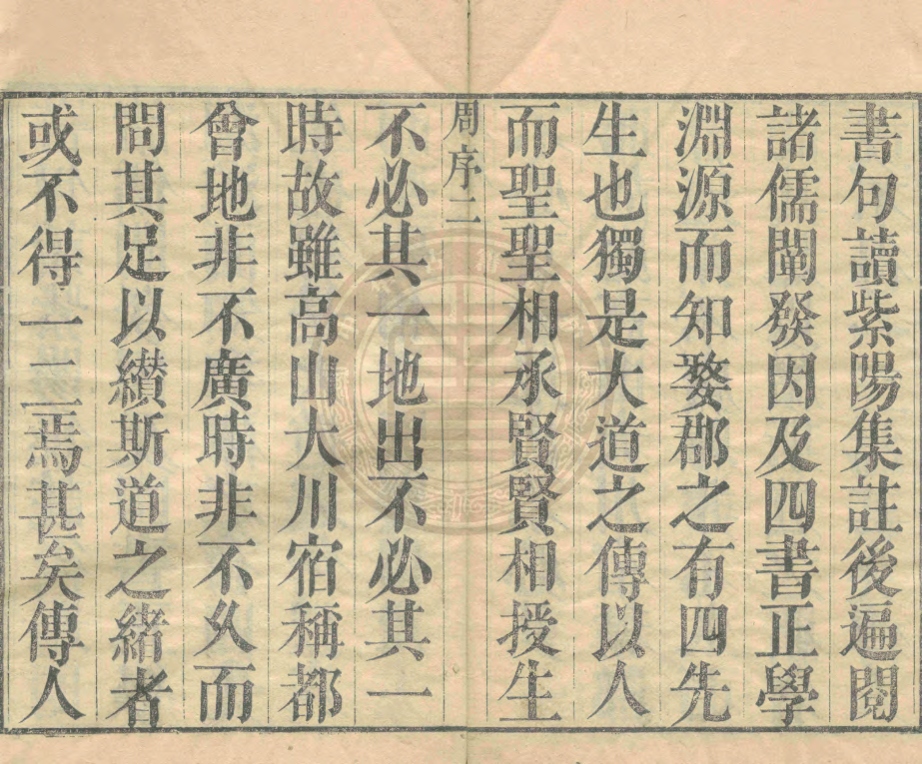 書句讀紫陽集註後遍閱
諸儒闡發因及四書正學
淵源而知婺郡之有四先
生也獨是大道之傳以人
而聖聖相承賢賢相授生
周序二
不必其一地出不必其一
時故雖高山大川宿稱都
會地非不廣時非不久而
問其足以纘斯道之緒者
或不得一二焉甚矣傳人